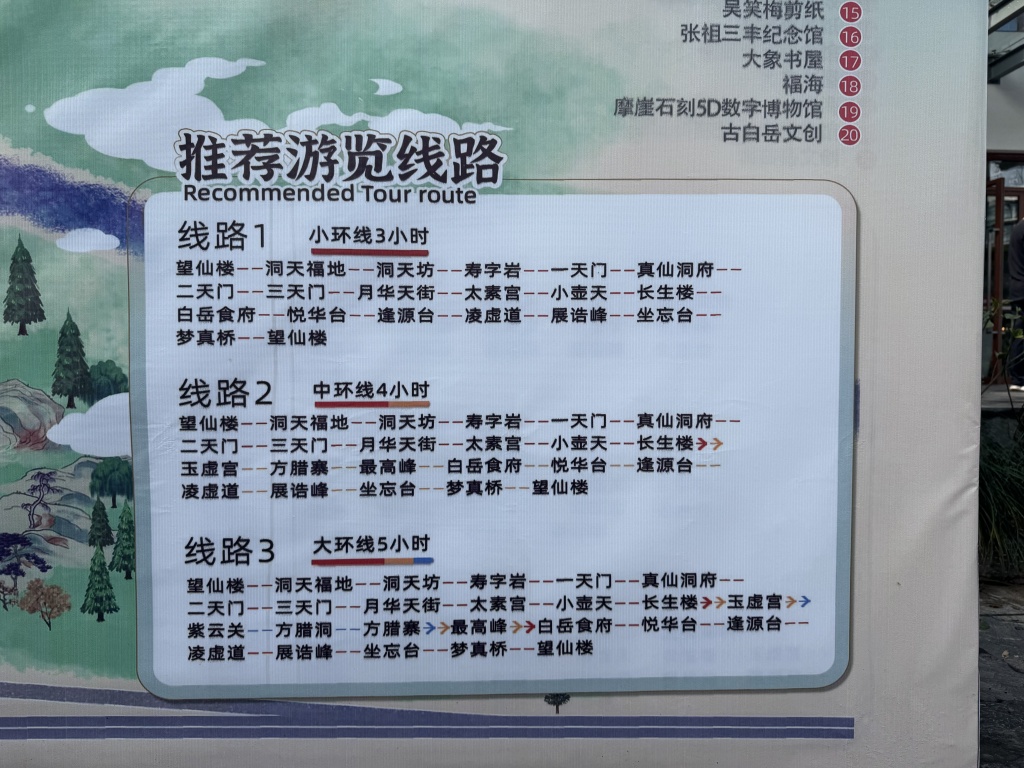 吴笑梅剪纸 15
张祖三丰纪念馆 16
大象书屋 17
福海 18
摩崖石刻5D数字博物馆 19
古白岳文创 20
推荐游览线路
Recommended Tour route
线路1 小环线3小时
望仙楼--洞天福地--洞天坊--寿字岩--一天门--真仙洞府--
二天门--三天门--月华天街--太素宫--小壶天--长生楼--
白岳食府--悦华台--逢源台--凌虚道--展诰峰--坐忘台--
梦真桥--望仙楼
线路2 中环线4小时
望仙楼--洞天福地--洞天坊--寿字岩--一天门--真仙洞府--
二天门--三天门--月华天街--太素宫--小壶天--长生楼>>
玉虚宫--方腊寨--最高峰--白岳食府--悦华台--逢源台--
凌虚道--展诰峰--坐忘台--梦真桥--望仙楼
线路3 大环线5小时
望仙楼--洞天福地--洞天坊--寿字岩--一天门--真仙洞府--
二天门--三天门--月华天街--太素宫--小壶天--长生楼>>玉虚宫>>
紫云关--方腊洞--方腊寨>>最高峰>>白岳食府--悦华台--逢源台--
凌虚道--展诰峰--坐忘台--梦真桥--望仙楼